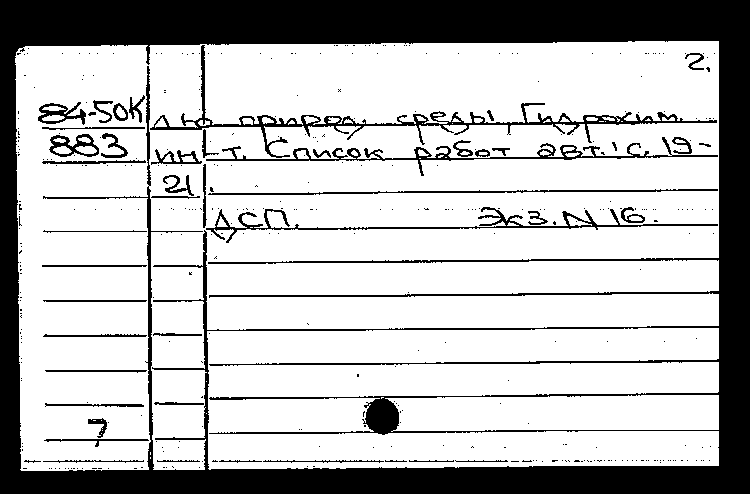 2.
84-50К лю природ. среды, Гидрохим.
883 ин-т. Список работ авт.: с. 19-
21.
ДСП. Экз. N 16.
7